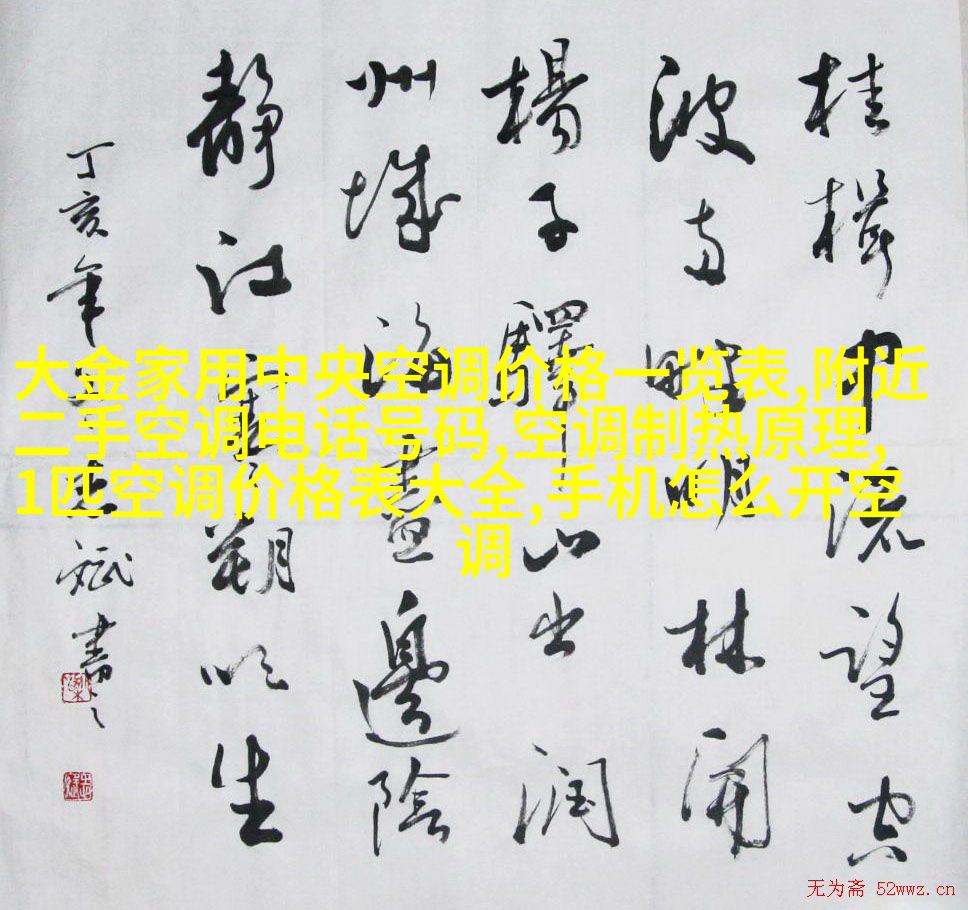 桂楫中流望空
波両畔明林開
楊子驛山出潤
州城海盡邊陰
靜江寒朔吹生
丁亥年志斌書
大金家用中央空调价格一览表,附近
二手空调电话号码,空调制热原理,
1匹空调价格表大全,手机怎么开空
调
无为斋 52wwz.cn